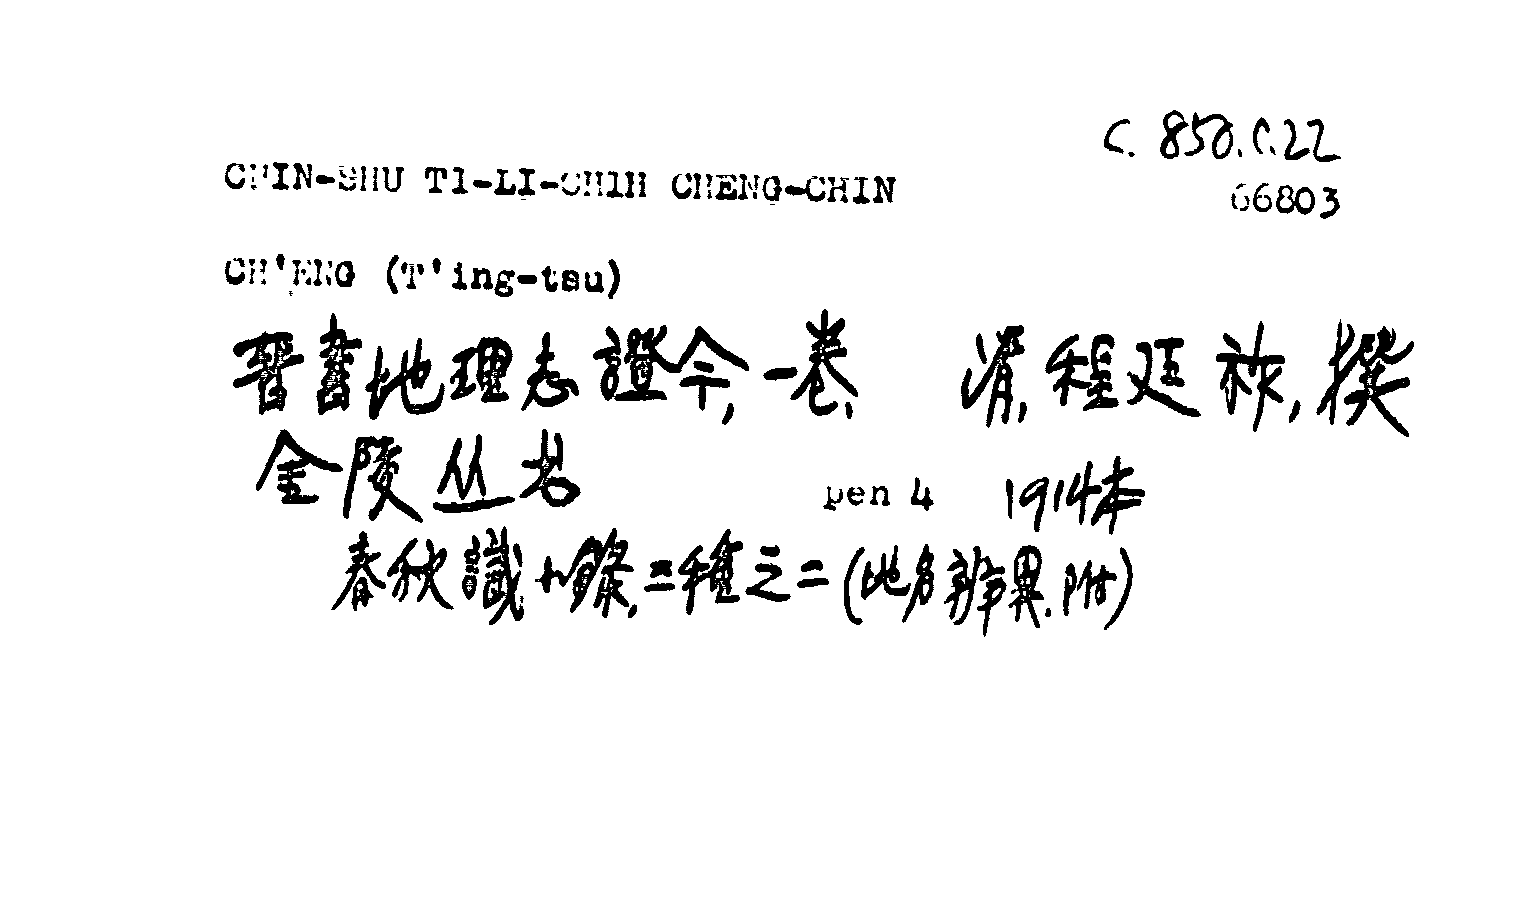 C. 850.C.22
CHIN-SHU TI-LI-CHIH CHENG-CHIN
66803
CH'ENG (T'ing-tsu)
晉書地理志證今,一卷, 清,程廷祚,撰
金陵丛书 pen 4 1914本
春秋識小餘,三種之二(地名辨異.附)